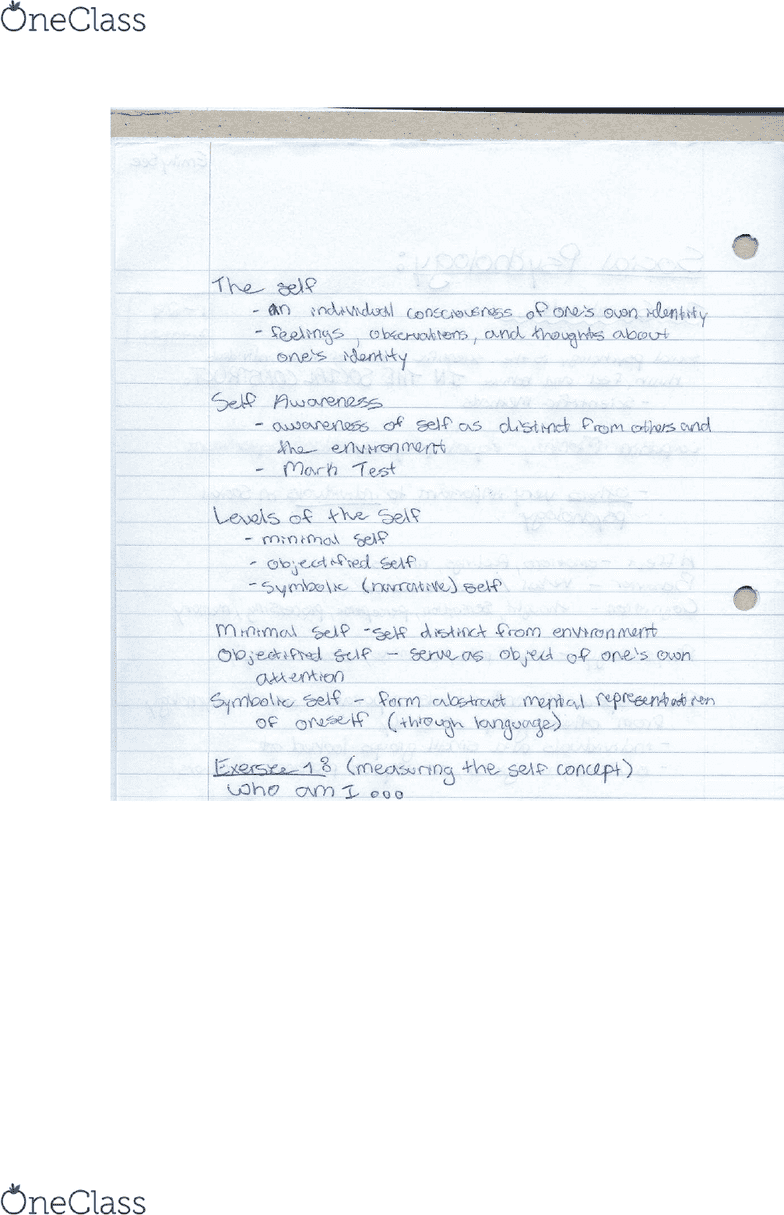 OneClass
The self
- an individual consciousness of one's own identity
- feelings, observations, and thoughts about
one's identity
Self Awareness
- awareness of self as distinct from others and
the environment
- Mark Test
Levels of the Self
- minimal self
- objectified self
- symbolic (narrative) self
Minimal self - self distinct from environment
Objectified self - serve as object of one's own
attention
Symbolic self - form abstract mental representation
of oneself (through language)
(measuring the self concept)
Who am I ...
OneClass